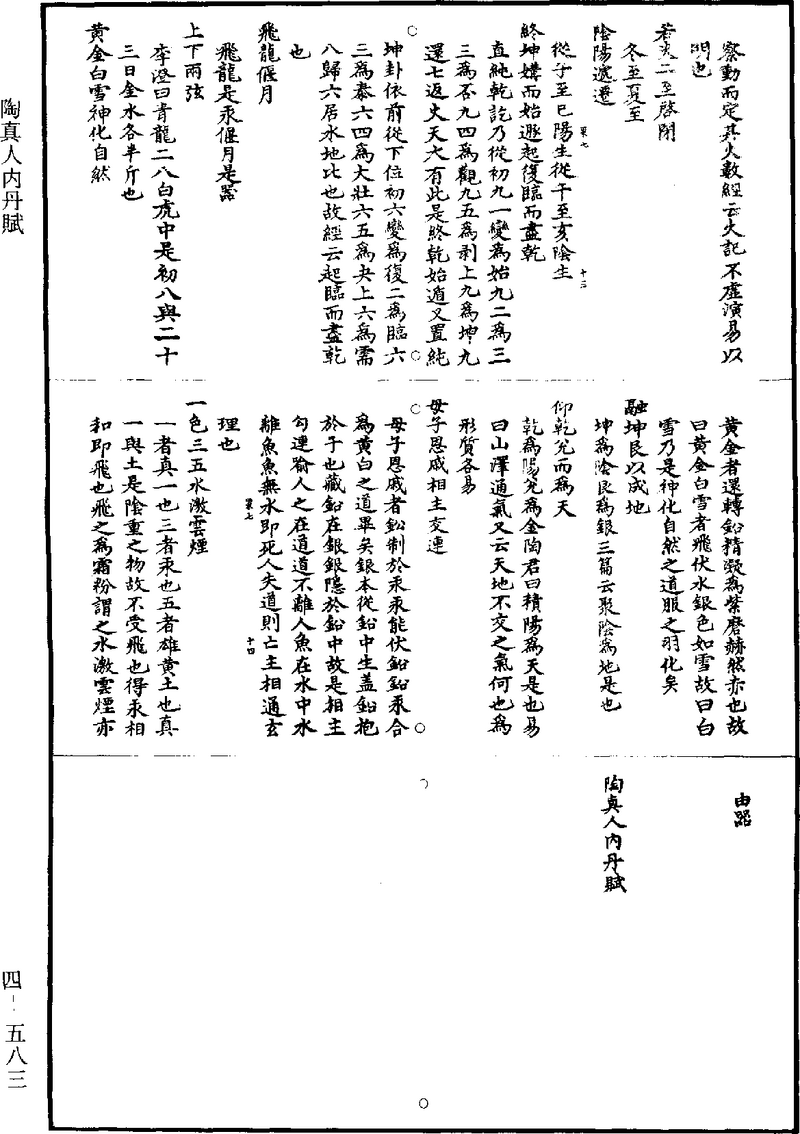 察動而定其火數經云火記不虛演易以
明也
若夫二至啓閉
冬至夏至
陰陽遞遷
從子至巳陽生從午至亥陰生
果七
十三
終坤媾而始遯起復臨而盡乾
直純乾訖乃從初九一變爲始九二爲三
三爲否九四爲觀九五爲剥上九爲坤九
還七返火天大有此是終乾始遁又置純
坤卦依前從下位初六變爲復二爲臨六
三爲泰六四爲大壯六五爲夬上六爲需
八歸六居水地比也故經云起臨而盡乾
也
飛龍偃月
飛龍是汞偃月是器
上下兩弦
李澄曰青龍二八白虎中是初八與二十
三日金水各半斤也
黃金白雪神化自然
黃金者還轉鉛精凝爲紫磨赫然赤也故
曰黃金白雪者飛伏水銀色如雪故曰白
雪乃是神化自然之道服之羽化矣
融坤艮以成地
坤爲陰艮爲銀三篇云聚陰爲地是也
仰乾兊而爲天
乾爲陽兊爲金陶君曰積陽爲天是也易
曰山澤通氣又云天地不交之氣何也爲
形質各易
母子恩戚相主交連
母子恩戚者鈆制於汞汞能伏鉛鉛汞合
爲黃白之道畢矣銀本從鉛中生蓋鉛抱
於子也藏鉛在銀銀隱於鉛中故是相主
勾連喻人之在道道不離人魚在水中水
離魚魚無水即死人失道則亡主相通玄
果七
十四
理也
一色三五水激雲煙
一者真一也三者汞也五者雄黃土也真
一與土是陰重之物故不受飛也得汞相
和即飛也飛之爲霜粉謂之水激雲煙亦
由器
陶真人内丹賦
陶真人内丹賦
四-五八三